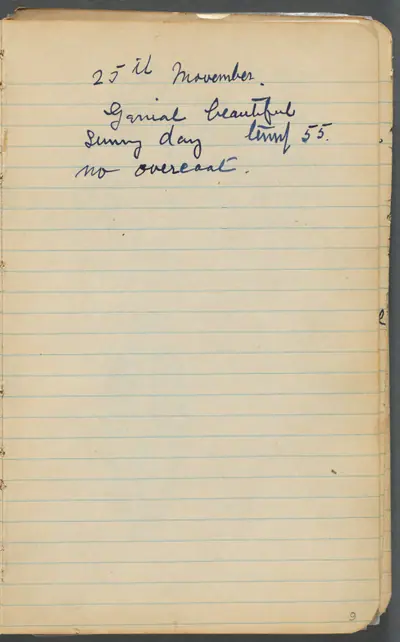 25th November.
Genial beautiful
sunny day temp 55.
no overcoat.
9